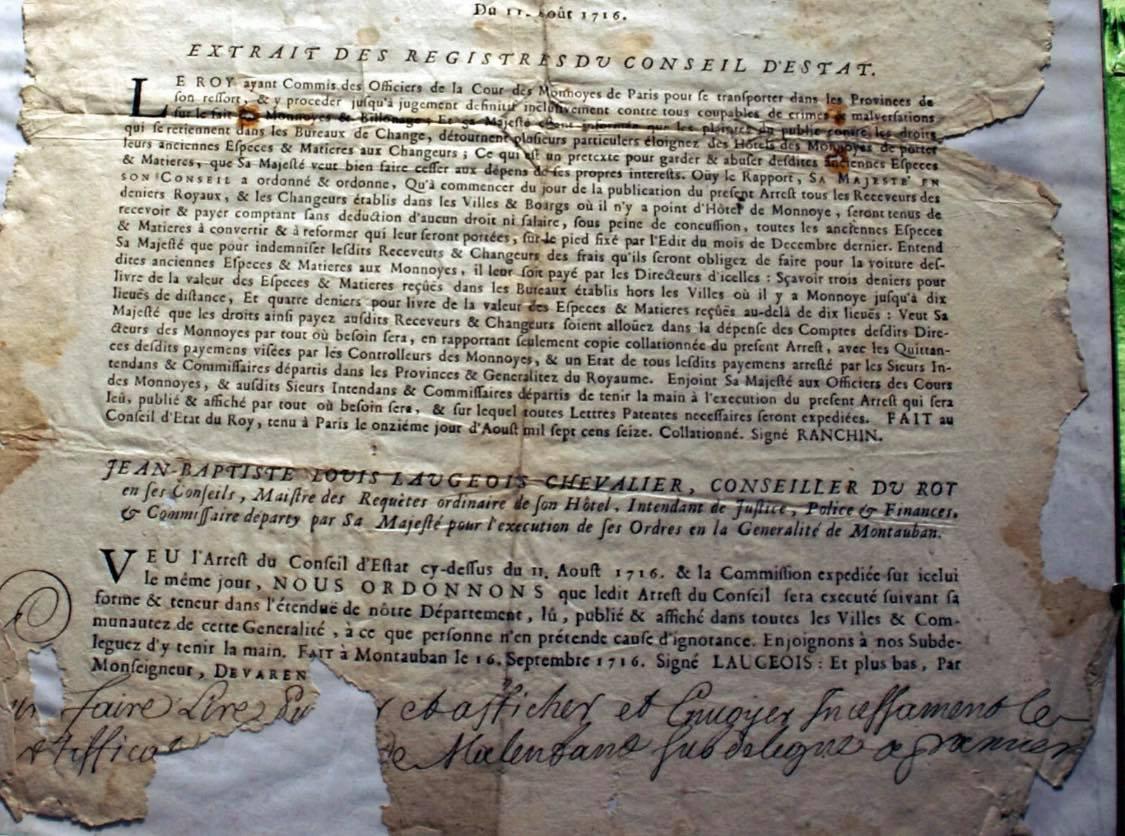 Du 11. Août 1716.
EXTRAIT DES REGISTRES DU CONSEIL D'ESTAT.
LE ROY ayant Commis des Officiers de la Cour des Monnoyes de Paris pour se transporter dans les Provinces de
son ressort, & y proceder jusqu'à jugement definitif inclusivement contre tous coupables de crimes & malversations
sur le fait de Monnoyes & Billonage; Et sa Majesté étant informée que les plaintes du public contre les droits
qui se retiennent dans les Bureaux de Change, détournent plusieurs particuliers éloignez des Hôtels des Monnoyes de porter
leurs anciennes Especes & Matieres aux Changeurs; Ce qui est un pretexte pour garder & abuser desdites anciennes Especes
& Matieres, que Sa Majesté veut bien faire cesser aux dépens de ses propres interests. Oüy le Rapport, SA MAJESTE' EN
SON CONSEIL a ordonné & ordonne, Qu'à commencer du jour de la publication du present Arrest tous les Receveurs des
deniers Royaux, & les Changeurs établis dans les Villes & Bourgs où il n'y a point d'Hôtel de Monnoye, seront tenus de
recevoir & payer comptant sans deduction d'aucun droit ni salaire, sous peine de concussion, toutes les anciennes Especes
& Matieres à convertir & à reformer qui leur seront portées, sur le pied fixé par l'Edit du mois de Decembre dernier. Entend
Sa Majesté que pour indemniser lesdits Receveurs & Changeurs des frais qu'ils seront obligez de faire pour la voiture des-
dites anciennes Especes & Matieres aux Monnoyes, il leur soit payé par les Directeurs d'icelles : Sçavoir trois deniers pour
livre de la valeur des Especes & Matieres reçûës dans les Bureaux établis hors les Villes où il y a Monnoye jusqu'à dix
lieuës de distance, Et quatre deniers pour livre de la valeur des Especes & Matieres reçûës au-delà de dix lieuës : Veut Sa
Majesté que les droits ainsi payez ausdits Receveurs & Changeurs soient alloüez dans la dépense des Comptes desdits Dire-
cteurs des Monnoyes par tout où besoin sera, en rapportant seulement copie collationnée du present Arrest, avec les Quittan-
ces desdits payemens visées par les Controlleurs des Monnoyes, & un Etat de tous lesdits payemens arresté par les Sieurs In-
tendans & Commissaires départis dans les Provinces & Generalitez du Royaume. Enjoint Sa Majesté aux Officiers des Cours
des Monnoyes, & ausdits Sieurs Intendans & Commissaires départis de tenir la main à l'execution du present Arrest qui sera
leû, publié & affiché par tout où besoin sera, & sur lequel toutes Lettres Patentes necessaires seront expediées. FAIT au
Conseil d'Etat du Roy, tenu à Paris le onziéme jour d'Aoust mil sept cens seize. Collationné. Signé RANCHIN.
JEAN-BAPTISTE LOUIS LAUGEOIS CHEVALIER, CONSEILLER DU ROY
en ses Conseils, Maistre des Requètes ordinaire de son Hôtel, Intendant de Justice, Police & Finances,
& Commissaire départy par Sa Majesté pour l'execution de ses Ordres en la Generalité de Montauban.
VEU l'Arrest du Conseil d'Estat cy-dessus du 11. Aoust 1716. & la Commission expediée sur icelui
le même jour, NOUS ORDONNONS que ledit Arrest du Conseil sera executé suivant sa
forme & teneur dans l'étenduë de nôtre Département, lû, publié & affiché dans toutes les Villes & Com-
munautez de cette Generalité, à ce que personne n'en prétende cause d'ignorance. Enjoignons à nos Subde-
leguez d'y tenir la main. FAIT à Montauban le 16. Septembre 1716. Signé LAUGEOIS : Et plus bas, Par
Monseigneur, DEVAREN
faire Lire et afficher et Envoyer Incessament le
de Malensans subdelegue a